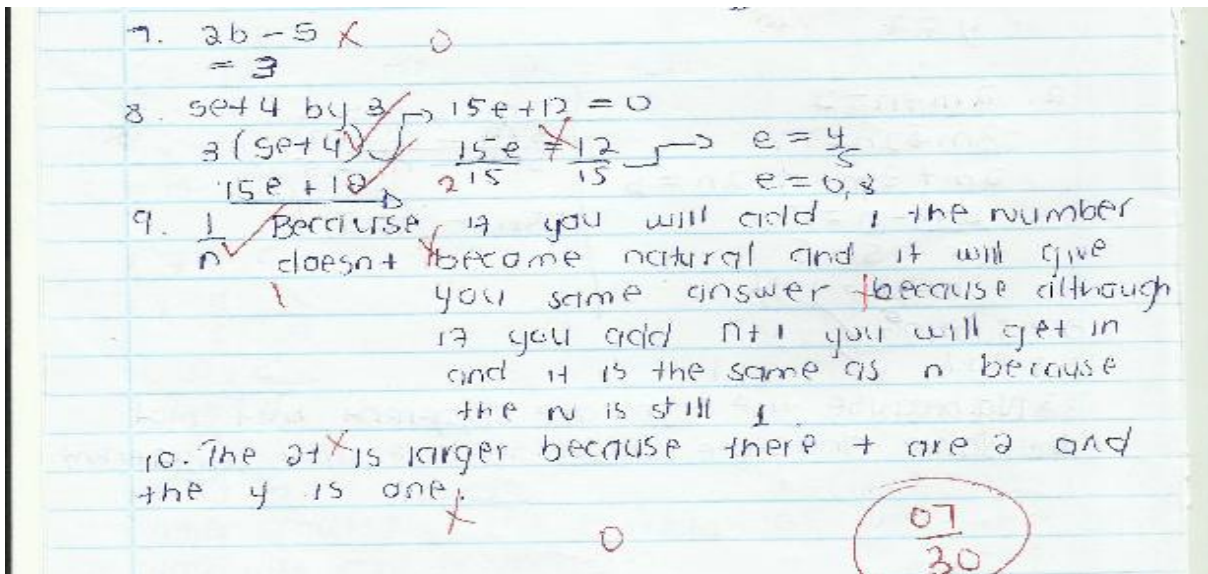 7. 2b - 5 0
= 3
8. 5e+4 by 3 15e+12 = 0
3(5e+4) 15e/15 = 12/15 e = 4/5
15e + 12 2 e = 0,8
9. 1/n Because, if you will add 1 the number
doesnt become natural and it will give
1 you same answer because although
if you add n+1 you will get 1n
and it is the same as n because
the n is still 1.
10. The 2t is larger because there t are 2 and
the 4 is one.
0 07/30